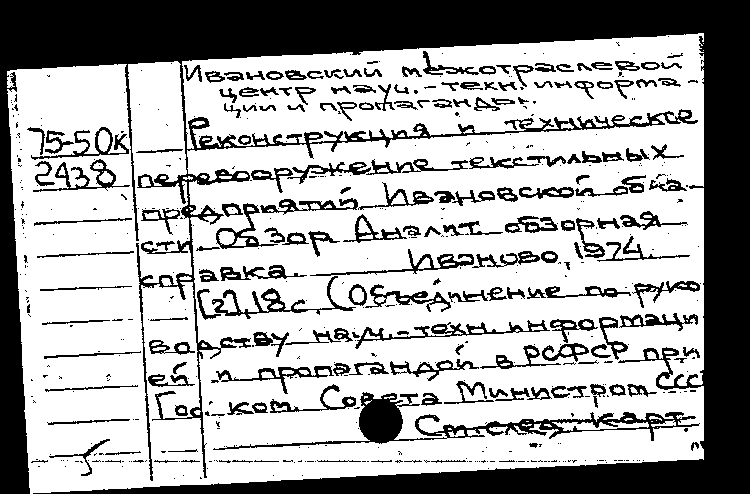 Ивановский межотраслевой
центр науч.-техн. информа-
ции и пропаганды.
75-50к Реконструкция и техническое
2438 перевооружение текстильных
предприятий Ивановской обла-
сти. Обзор. Аналит. обзорная
справка. Иваново, 1974.
[2], 18 с. (Объединение по руко
водству науч.-техн. информаци
ей и пропагандой в РСФСР при
Гос. ком. Совета Министром ССС
См. след. карт.